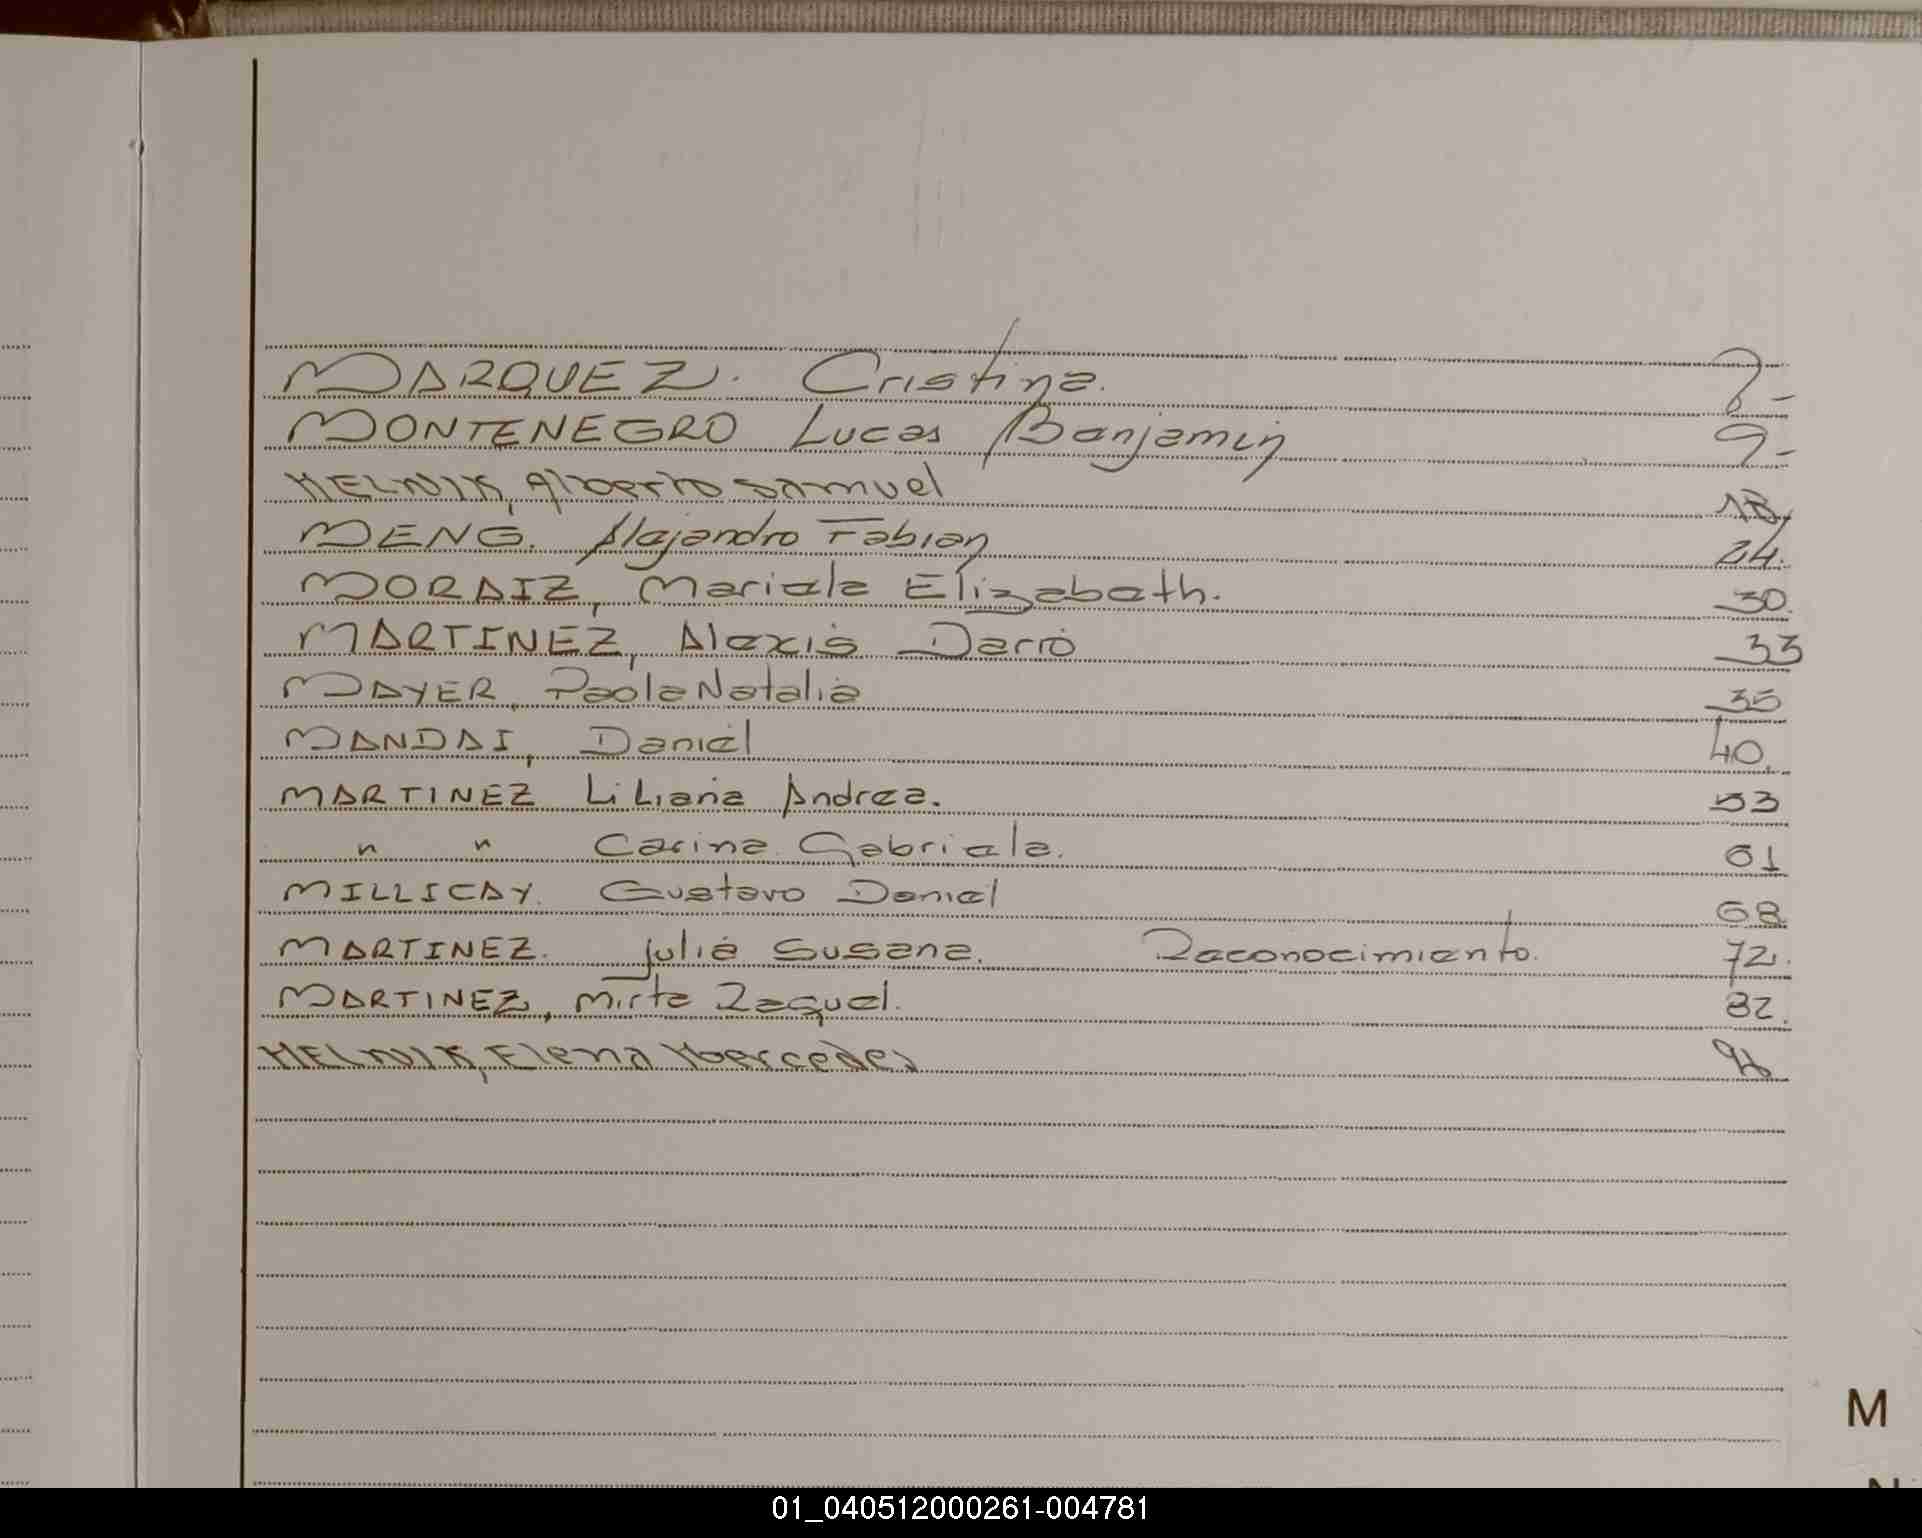 MARQUEZ. Cristina. 8-
MONTENEGRO Lucas Benjamin 9-
MELNIK, Alberto Samuel 18,
MENG. Alejandro Fabian 24.
MORAIZ, Mariela Elizabeth. 30.
MARTINEZ, Alexis Dario 33
MAYER, Paola Natalia 35
MANDAI, Daniel 40.
MARTINEZ Liliana Andrea. 53
" " Carina Gabriela. 61
MILLICAY. Gustavo Daniel 68.
MARTINEZ. Julia Susana. Reconocimiento. 72.
MARTINEZ, Mirta Raquel. 82.
MELNIK, Elena Mercedes
M
01_040512000261-004781